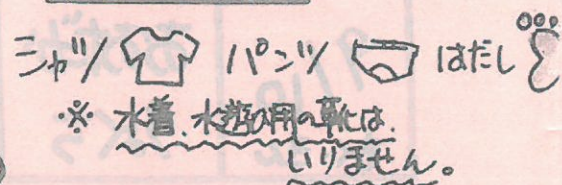 シャツ パンツ はだし
※ 水着、水遊び用の靴は、
いりません。